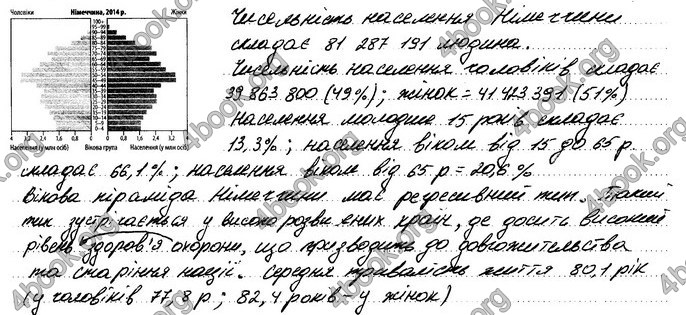 Чоловіки Німеччина, 2014 р. Жінки
100+
95–99
90–94
85–89
80–84
75–79
70–74
65–69
60–64
55–59
50–54
45–49
40–44
35–39
30–34
25–29
20–24
15–19
10–14
5–9
0–4
4 3,2 2,4 1,6 0,8 0 0 0,8 1,6 2,4 3,2 4
Населення (у млн осіб) Вікова група Населення (у млн осіб)
Чисельність населення Німеччини
складає 81 287 191 людина.
Чисельність населення чоловіків складає
39 863 800 (49%); жінок = 41 423 391 (51%)
Населення молодше 15 років складає
13,3%; населення віком від 15 до 65 р.
складає 66,1%; населення віком від 65 р = 20,6 %
Вікова піраміда Німеччини має регресивний тип. Такий
тип зустрічається у високорозвинених країн, де досить високий
рівень здоров'я охорони, що призводить до довгожительства
та старіння нації. Середня тривалість життя 80,1 рік
(у чоловіків 77,8 р; 82,4 років – у жінок)
4book.org